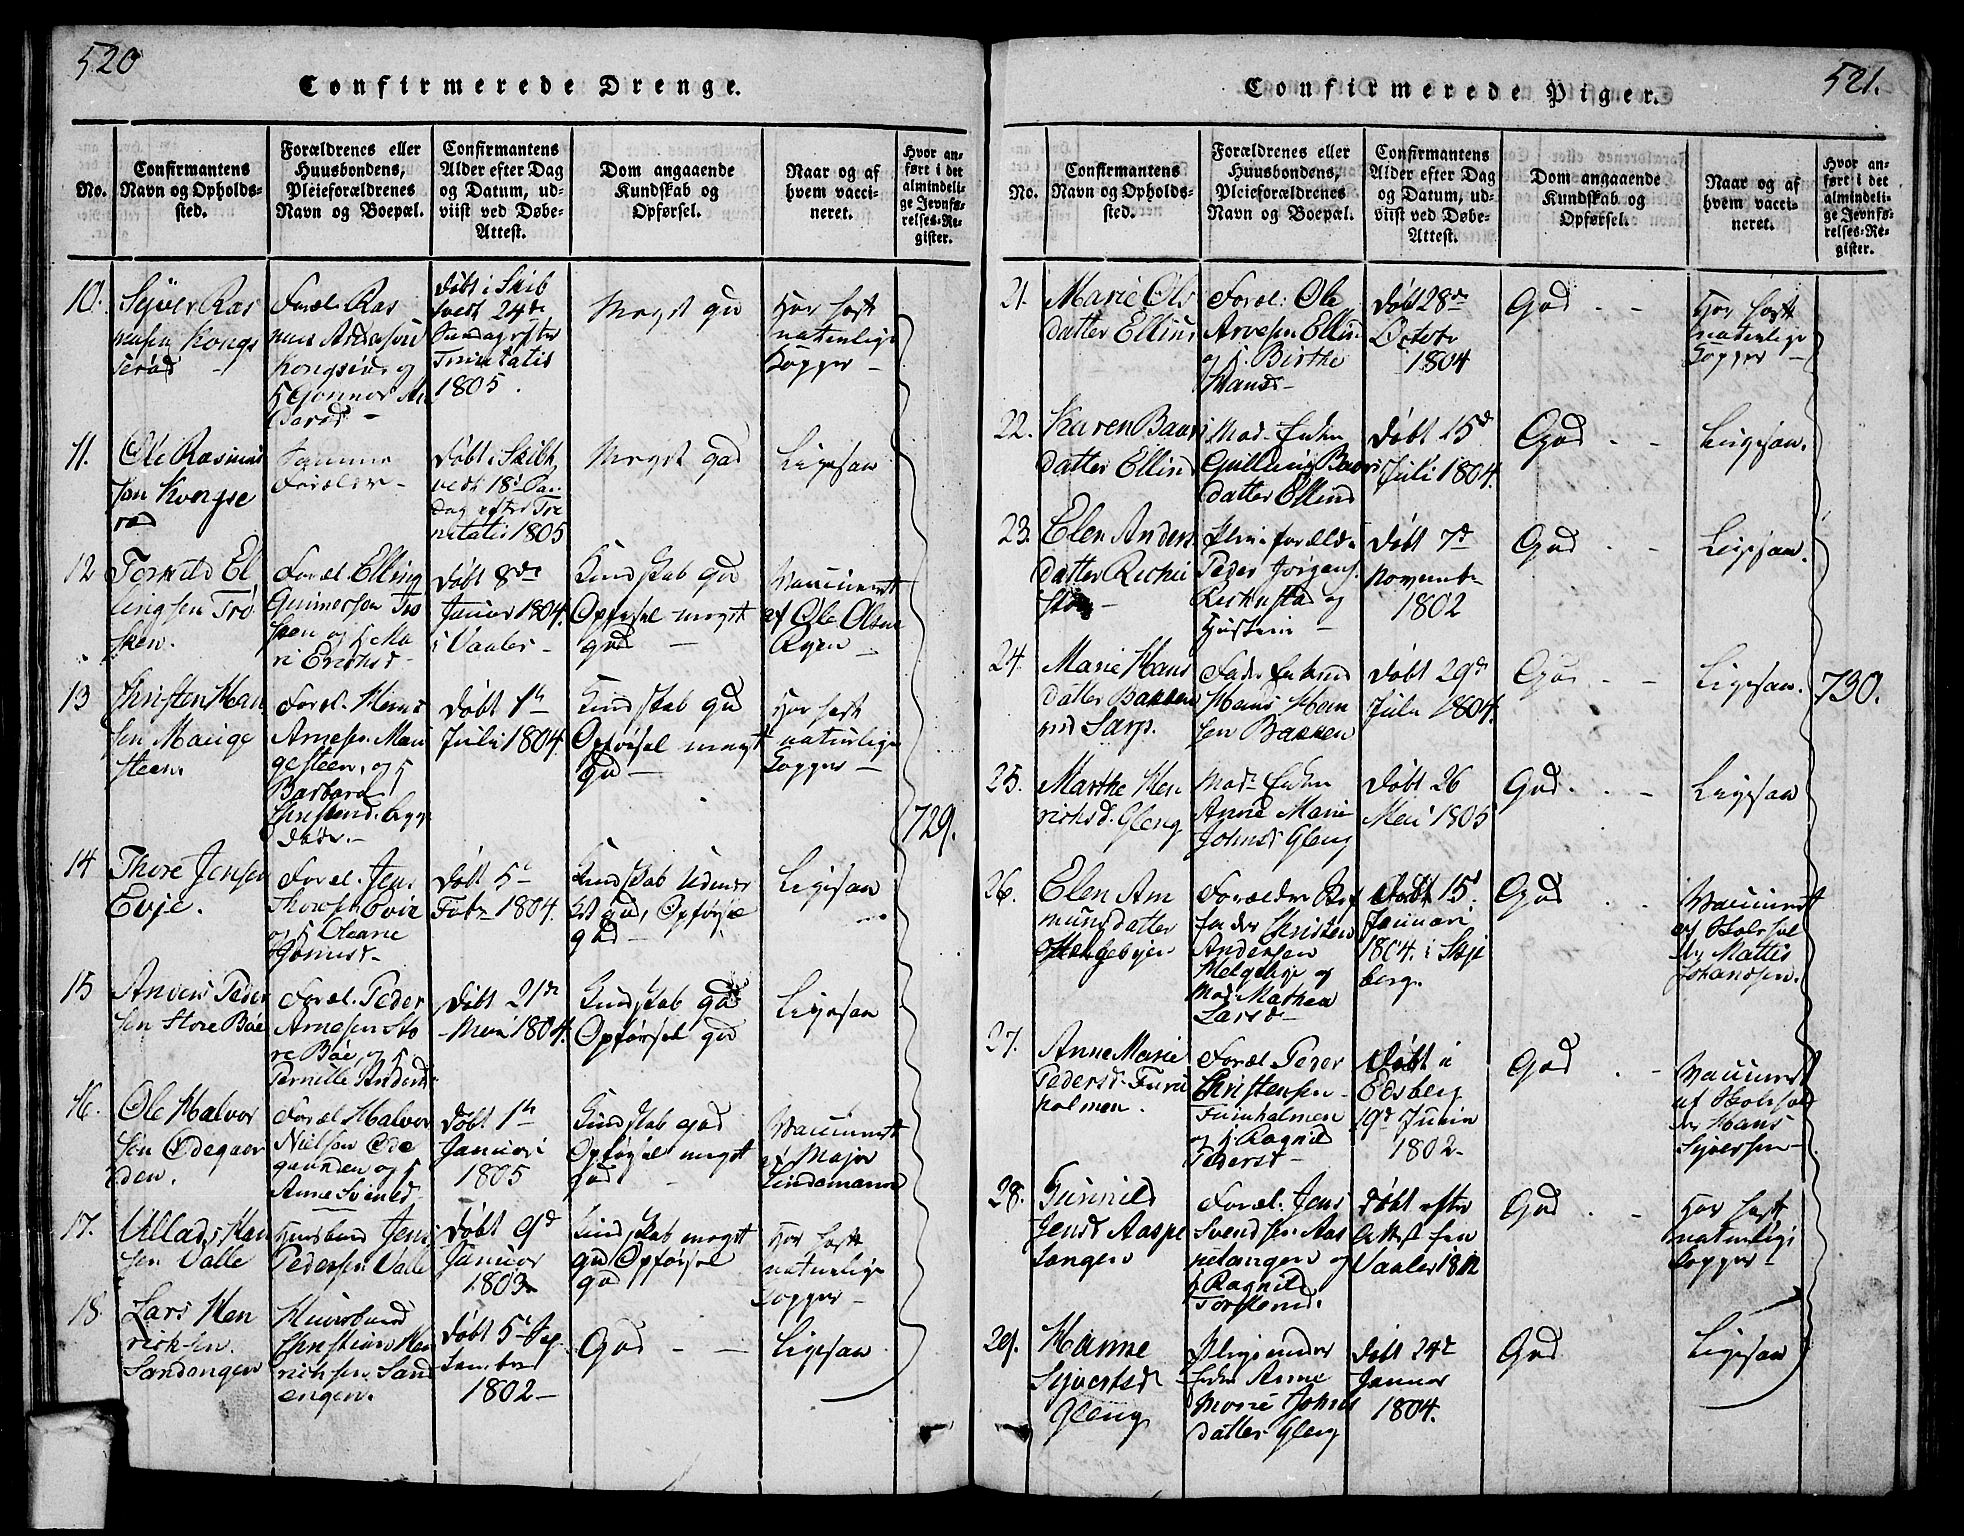 520
Confirmerede Drenge.
No.
Confirmantens
Navn og Opholds-
sted.
Forældrenes eller
Huusbondens,
Pleieforældrenes
Navn og Boepæl.
Confirmantens
Alder efter Dag
og Datum, ud-
viist ved Døbe-
Attest.
Dom angaaende
Kundskab og
Opførsel.
Naar og af
hvem vacci-
neret.
Hvor an-
ført i det
almindeli-
ge Jevnfø-
relses-Re-
gister.
10.
Syver Ras
musen Kongs
rød
Foræl. Ras
mus
Kongsrød og
Døbt i Skib
tvedt 24de
Søndag efter
Trinitatis
1805.
Meget god
Har havt
naturlige
Kopper
11.
Ole Rasmus
sen Kongse
rød
Samme
Forældre
Døbt i Skibt
vedt 18de Søn
dag efter Tri
nitatis 1805
Meget god
Ligesaa
12
Torkild El
lingsen Trø
sken.
Foræl. Elling
Gunnersen Trø
sken og K. Ma
ri Erichsd.
Døbt 8de
Januar 1804.
i Vaaler
Kundskab god
Opførsel meget
god
Vaccineret
af Ole Olsen
13
Christen Han
sen Mauge
steen.
Foræl. Hans
Arnesen Mau
gesteen, og K.
Barbara
Christensd. begge
døde.
Døbt 1te
Juli 1804.
Kundskab god
Opførsel meget
god
Har havt
naturlige
Kopper
729.
14
Thore Jensen
Evje.
Foræl. Jens
Thoresen Evie
og K. Oleane
Døbt 5te
Febr 1804.
Kundskab Udmær
ket god, Opførsel
god
Ligesaa
15
Anders Peder
sen Store Bøe
Foræl. Peder
Arnesen Sto
re Bøe, og K.
Pernille Andersd.
Døbt 21de
Mai 1804.
Kundskab god
Opførsel god
Ligesaa
16.
Ole Halvor
sen Ødegaar
den.
Foræl Halvor
Nielsen Øde
gaarden og K.
Anne Svensd.
Døbt 1te
Januari
1805
Kundskab god
Opførsel meget
god
Vaccineret
af Major
Lindemann
17.
Villads Han
sen Valle
Huusbond Jens
Pedersen Valle
Døbt 9d
Januar
1803
Kundskab meget
god Opførsel
god
Har havt
naturlige
Kopper
18
Lars Hen
richsen.
Sandengen
Huusbond
Christian Hen
richsen Sand
engen.
Døbt 5te Sep
tember
1802
God
Ligesaa
521.
Confirmerede Piger.
No.
Confirmantens
Navn og Opholds-
sted.
Forældrenes eller
Huusbondens,
Pleieforældrenes
Navn og Boepæl.
Confirmantens
Alder efter Dag
og Datum, ud-
viist ved Døbe-
Attest.
Dom angaaende
Kundskab og
Opførsel.
Naar og af
hvem vacci-
neret.
Hvor an-
ført i det
almindeli-
ge Jevnfø-
relses-Re-
gister.
21.
Marie Ols
datter Ellind
Foræl: Ole
Arvesen Ellin
og K. Birthe
Hansd
Døbt 28de
Octobr
1804
God
Har havt
naturlige
Kopper
22.
Karen Baars
datter Ellind
Mod. Enken
Gulline Baars
datter Ellind
Døbt 15d
Juli 1804.
God
Ligesaa.
23.
Elen Anders
datter
Pleieforæld.
Peder Jørgens.
og
Hustrue
Døbt 7d
Novembr
1802
God
Ligesaa.
24.
Marie Hans
datter Bakken
ved Sarp.
Fad. Enkmd
Hans Han
sen Bakken
Døbt 29d
Juli 1804.
God
Ligesaa.
730.
25.
Marthe Hen
richsd. Gleng
Mod. Enken
Anne Marie
Johnsd Gleng
Døbt 26
Mai 1805
God.
Ligesaa
26.
Elen Am
mundsdatter
Helgebyen
Forældre Stif
fader Christen
Andersen
Helgebye og
Mod. Mathea
Larsd
Døbt 15d
Januari
1804. i Skje
berg.
God
Vaccineret
af Skolehol
der Mattis
Johansen.
27.
Anne Marie
Pedersd. Furu
holmen.
Foræl Peder
Christensen
Furuholmen
og K. Ragnild
Pedersd
Døbt i
Eidsberg
19d Junii
1802
God
Vaccineret
af Skolehol
der Hans
Syversen
28.
Gunnild
Jensd Aaspe
langen
Foræl. Jens
Svendsen Aas
pelangen og
K. Ragnild
Torstensd.
Døbt efter
Attest fra
Vaaler
God
Har havt
naturlige
Kopper
29.
Hanne
Syversted
Gleng
Pleiemoder
Enken Anne
Marie Johns
datter Gleng
Døbt 24de
Januar
1804.
God
Ligesaa